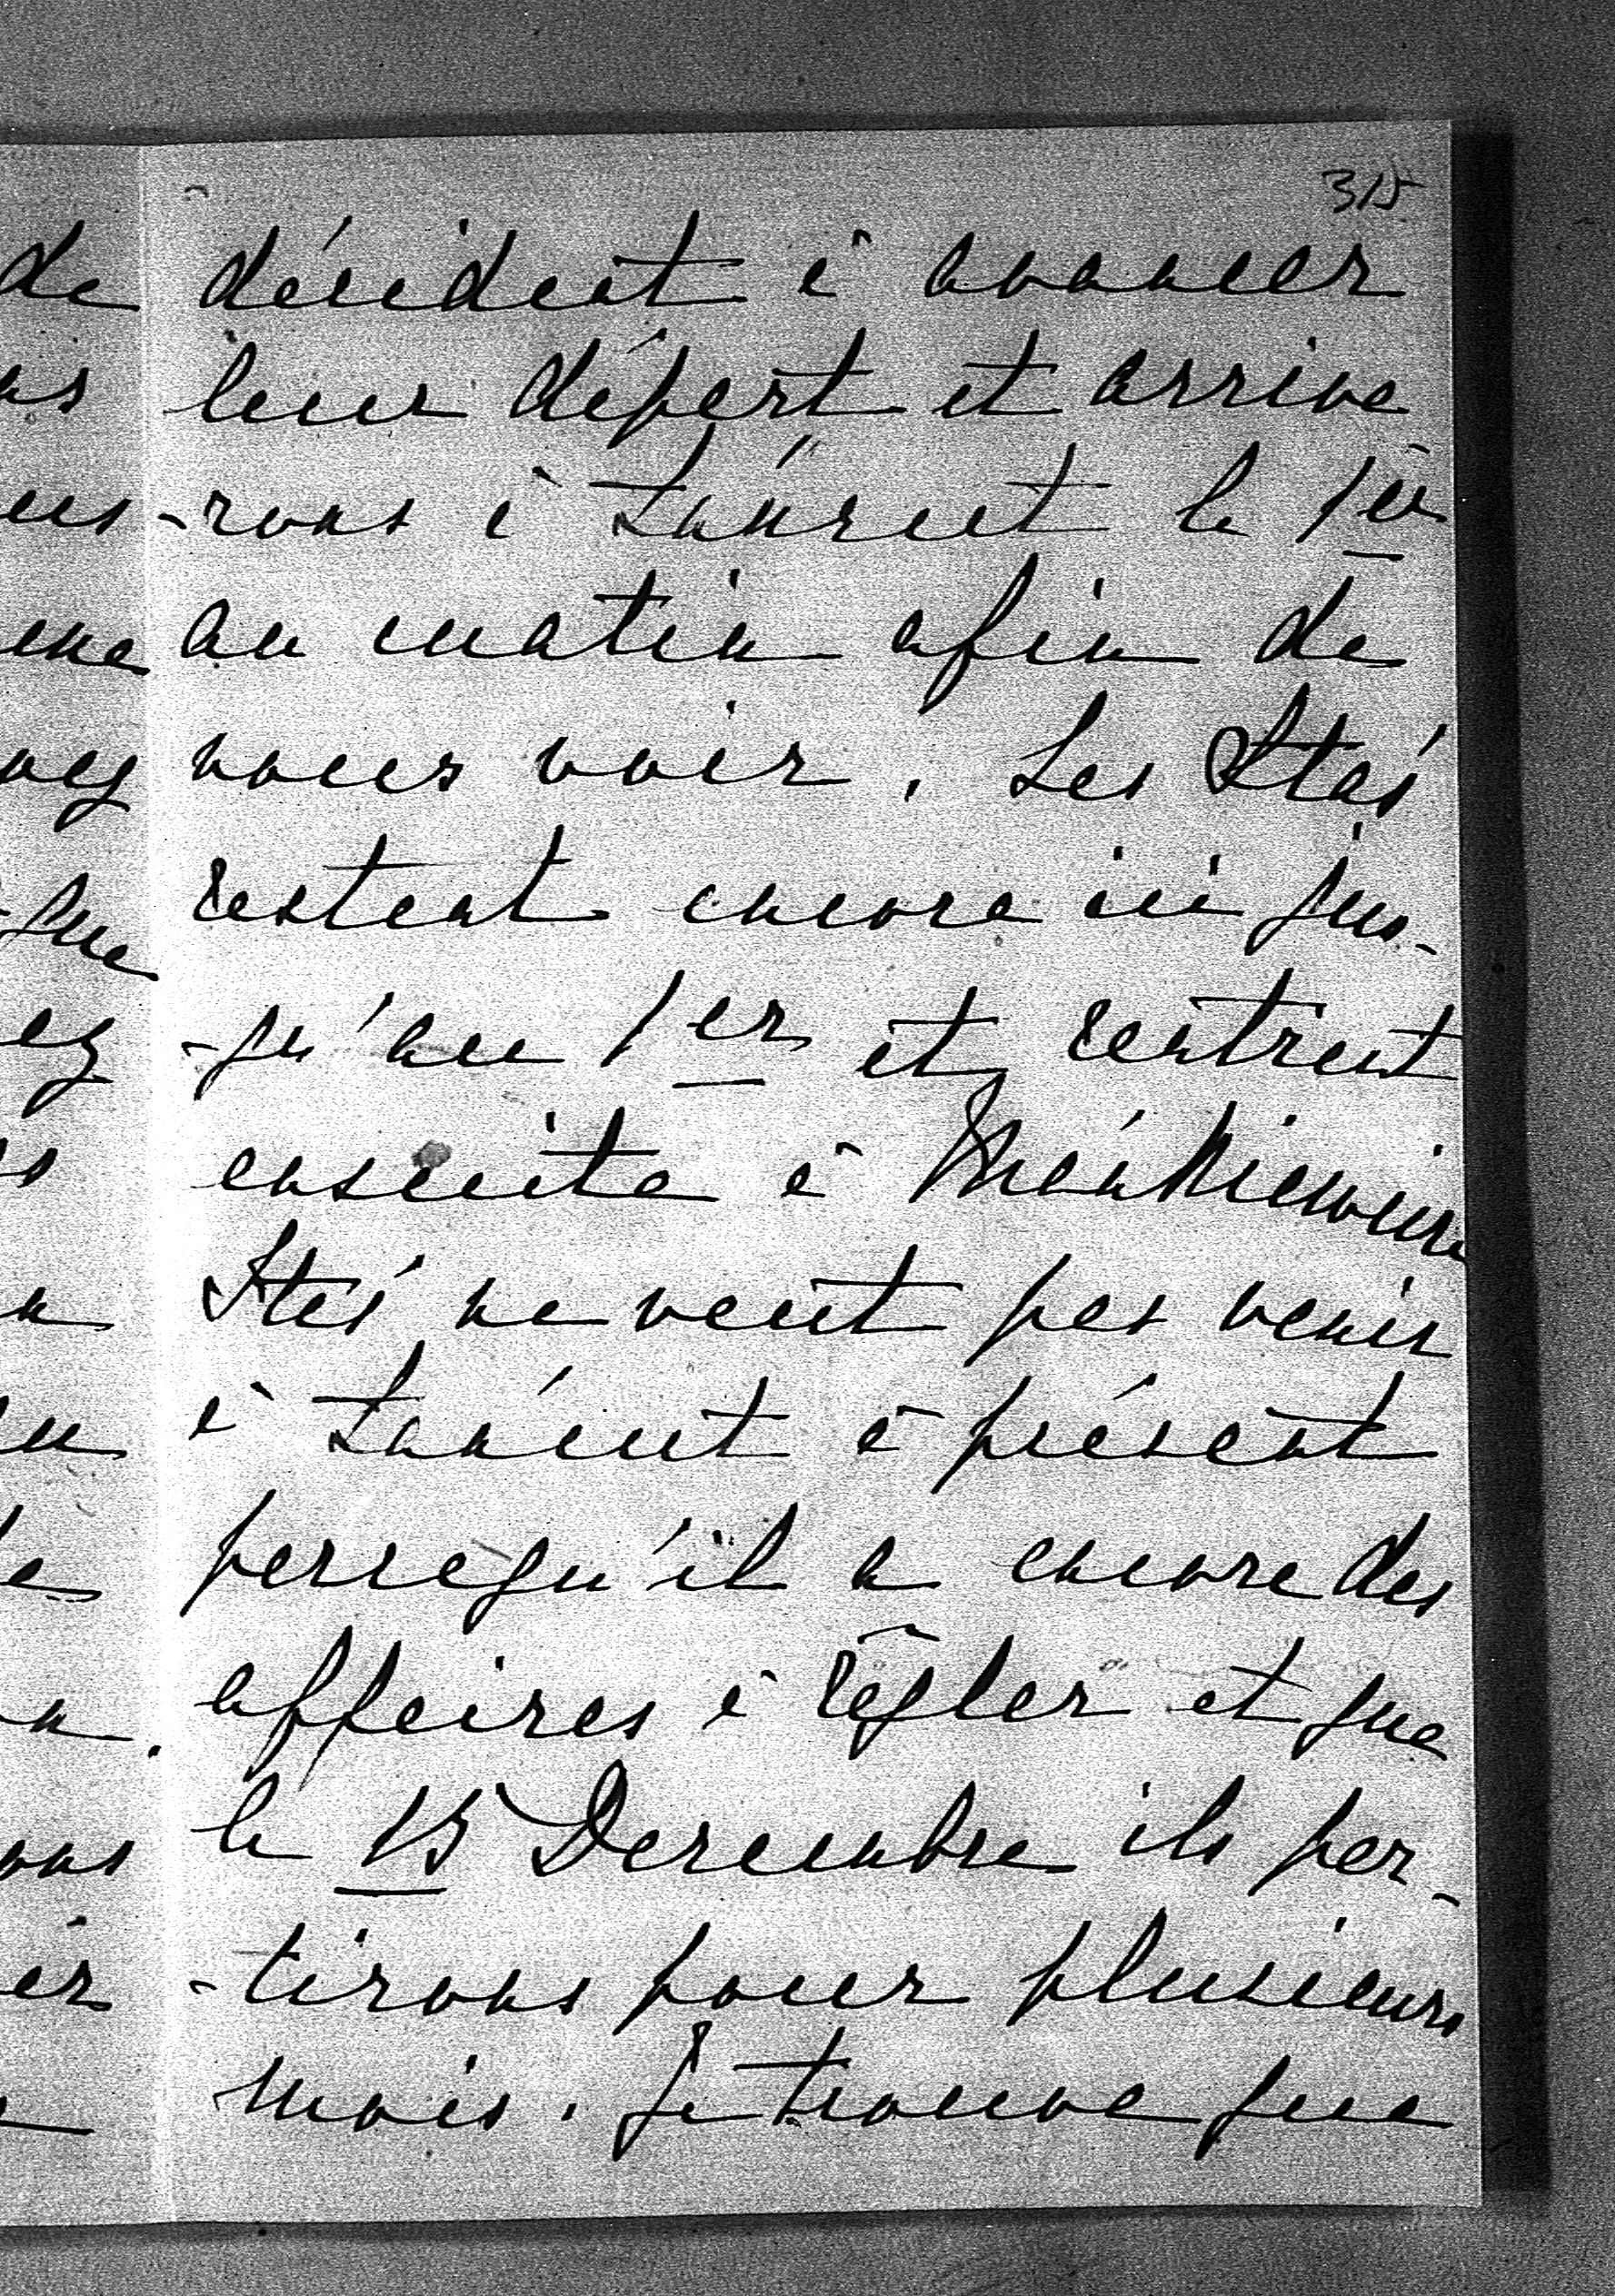 315
décident à avancer
leur départ et arrive
-rons à Lańcut le 1er
au matin afin de
nous voir. Les Staś
restent encore ici jus-
-qu'au 1er et rentrent
ensuite à
Staś ne veut pas venir
à Lańcut à présent
parcequ'il a encore des
affaires à règler et que
le 15 Decembre ils par-
-tirons pour plusieurs
mois. Je trouve que